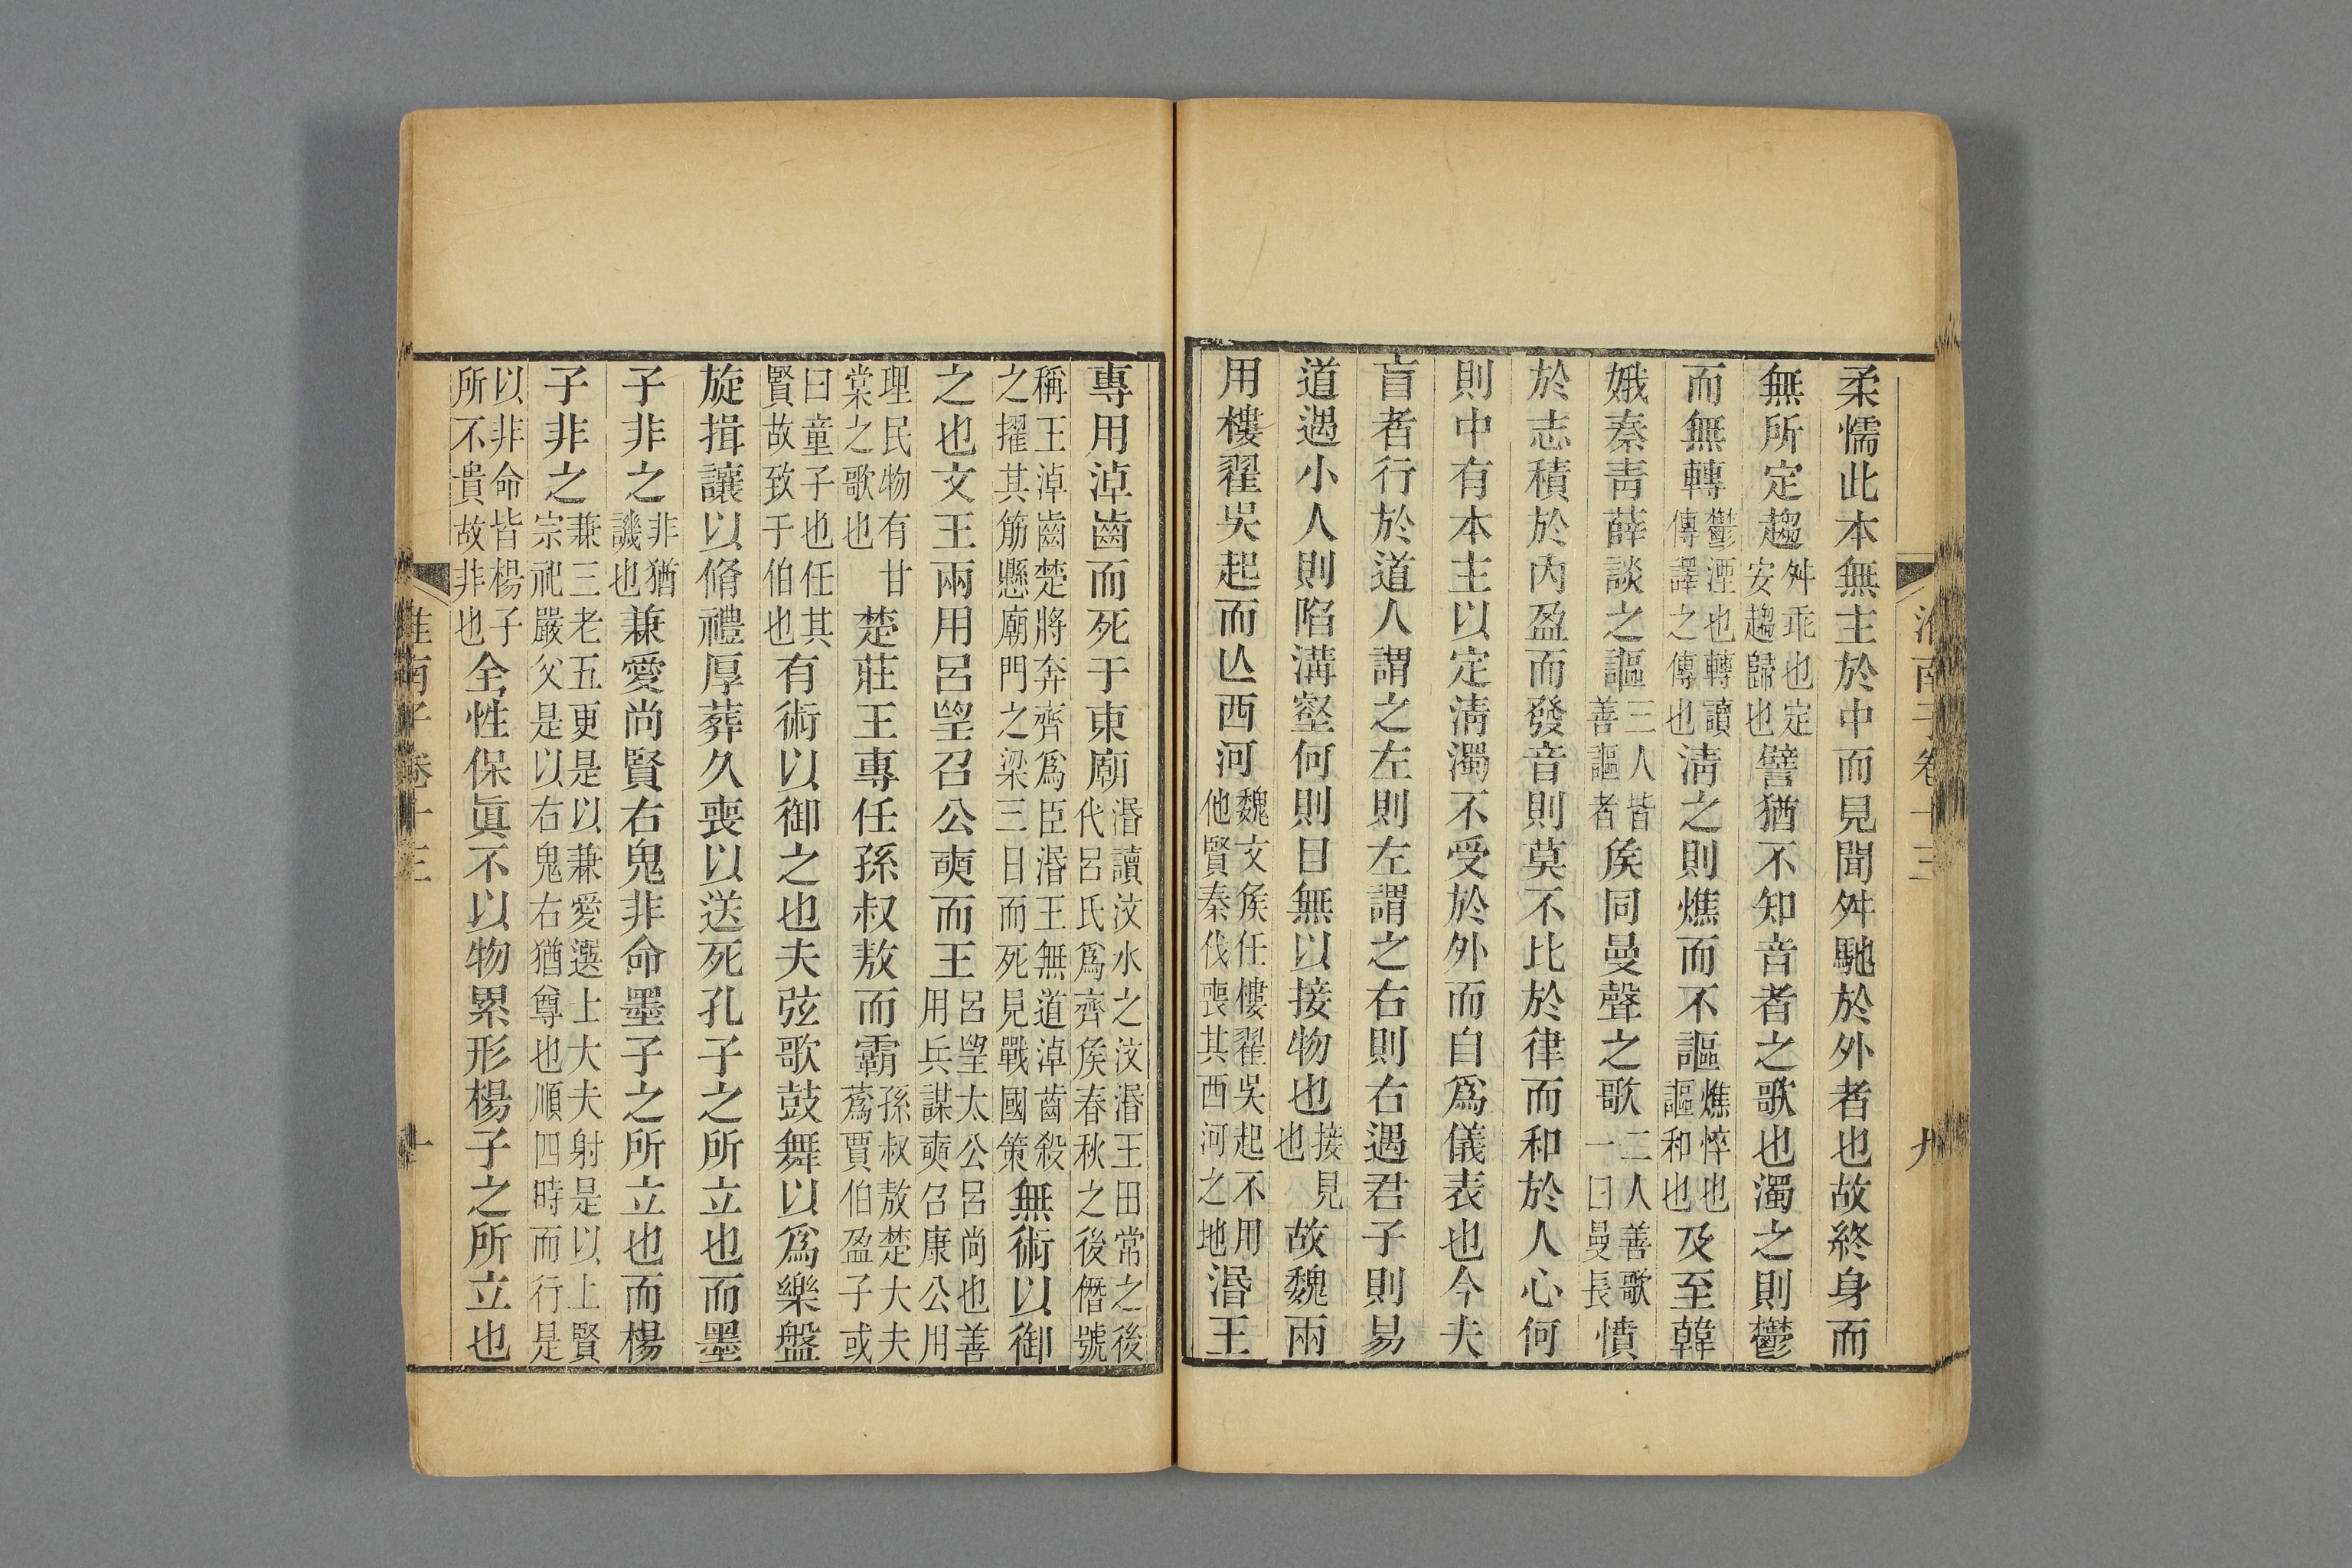 淮南子卷十三　九
柔懦此本無主於中而見聞舛馳於外者也故終身而
無所定趨舛乖也定安趨歸也譬猶不知音者之歌也濁之則鬱
而無轉鬱湮也轉讀傳譯之傳也清之則燋而不謳燋悴也謳和也及至韓
娥秦青薛談之謳三人皆善謳者矦同曼聲之歌二人善歌一曰曼長憤
於志積於內盈而發音則莫不比於律而和於人心何
則中有本主以定清濁不受於外而自爲儀表也今夫
盲者行於道人謂之左則左謂之右則右遇君子則易
道遇小人則陷溝壑何則目無以接物也接見也故魏兩
用樓翟吳起而亾西河魏文矦任樓翟吳起不用他賢秦伐喪其西河之地湣王
專用淖齒而死于東廟湣讀汶水之汶湣王田常之後代呂氏爲齊矦春秋之後僭號
稱王淖齒楚將奔齊爲臣湣王無道淖齒殺之擢其筋懸廟門之梁三日而死見戰國策無術以御
之也文王兩用呂朢召公奭而王呂朢太公呂尚也善用兵謀奭召康公用
理民物有甘棠之歌也楚莊王專任孫叔敖而霸孫叔敖楚大夫蒍賈伯盈子或
曰童子也任其賢故致于伯也有術以御之也夫弦歌鼓舞以爲樂盤
旋揖讓以脩禮厚葬久喪以送死孔子之所立也而墨
子非之非猶譏也兼愛尚賢右鬼非命墨子之所立也而楊
子非之兼三老五更是以兼愛選上大夫射是以上賢宗祀嚴父是以右鬼右猶尊也順四時而行是
以非命皆楊子所不貴故非也全性保眞不以物累形楊子之所立也
淮南子卷十三　十